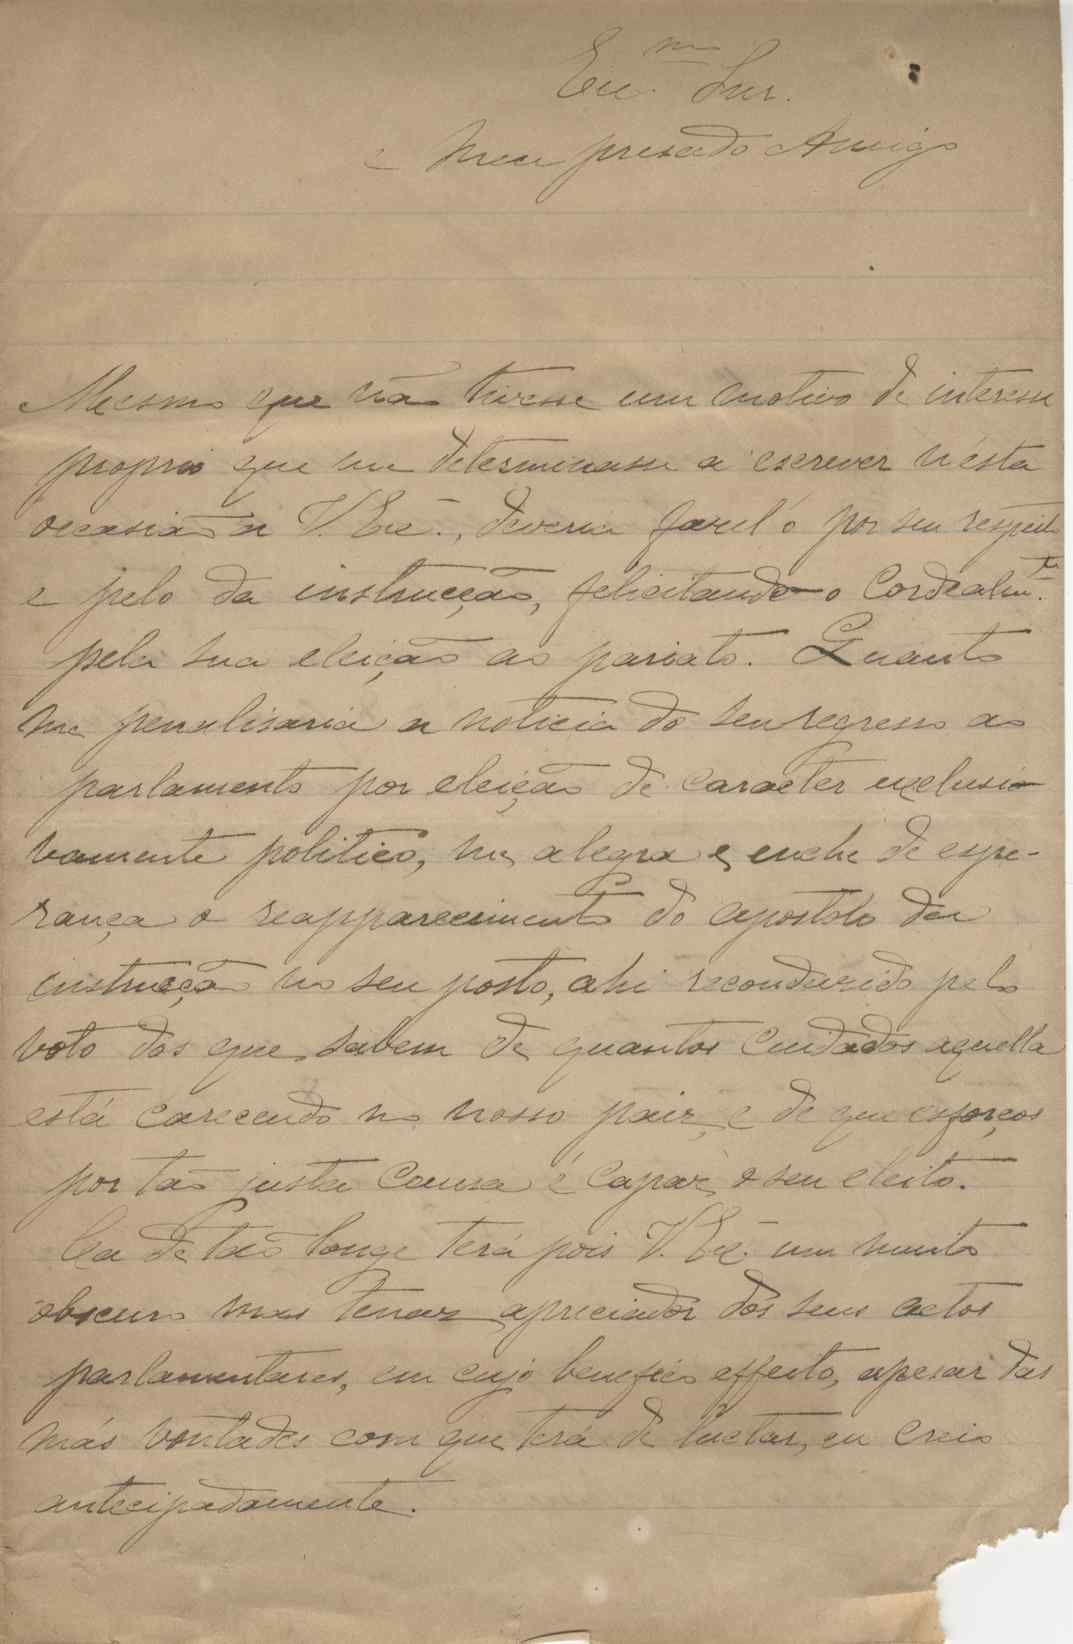 Ex.mo Snr.
e Meu presado Amigo
Mesmo que não tivesse um motivo de interesse
proprio que me determinasse a escrever n'ésta
occasião a V. Exc.ª, deveria fazel'o por seu respeito
e pelo da instrucção, felicitando-o Cordealm.te
pela sua eleição ao pariato. Quanto
me penalisaria a noticia do seu regresso ao
parlamento por eleição de caracter exclusi-
vamente politico, me alegra e enche de espe-
rança o reapparecimento do apostolo da
instrucção no seu posto, ahi reconduzido pelo
voto dos que sabem de quantos cuidados aquella
está carecendo no nosso paiz, e de que esforços
por tão justa Causa é capaz o seu eleito.
Cá de tão longe terá pois V. Exª um muito
obscuro mas tenaz apreciador dos seus actos
parlamentares, em cujo benefico effeito, apesar das
más vontades com que terá de luctar, eu creio
antecipadamente.